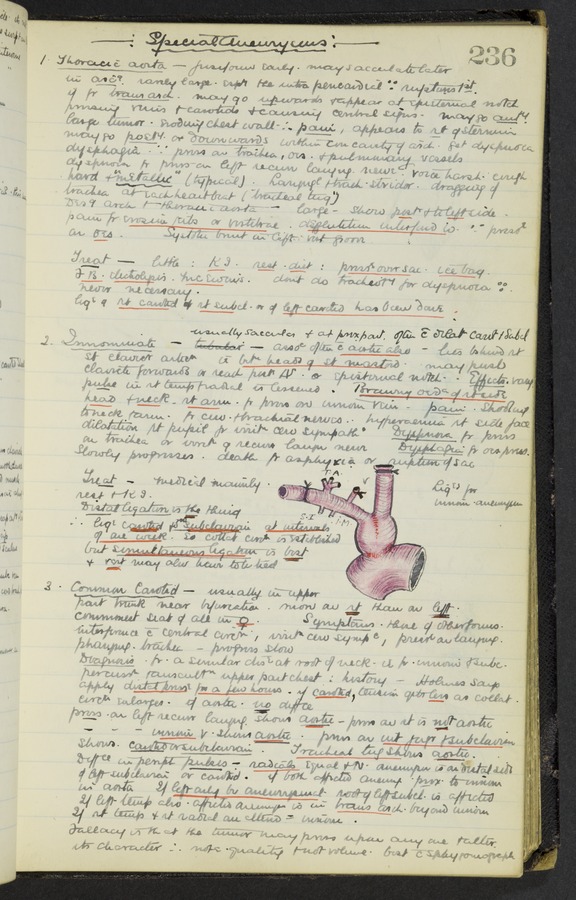 Special Aneurysms:
236
1. Thoracic aorta — fusiform early. may sacculate later
in asc^g. rarely large. the intra pericardial ∵ ruptures 1st.
if fr trans arch. may go upwards & appear at episternal notch
pressing veins & carotids & causing cerebral signs. may go ant^ly
large tumor. eroding chest wall ∴ pain, appears to rt of sternum
may go post^ly or downwards within concavity of arch. get dyspnoea
dysphagia ∵ press on trachea, oes. & pulmonary vessels
dyspnoea fr press on left recurr laryng nerve. voice harsh. cough
hard & "metallic" (typical). laryngl & trach stridor. dragging of
trachea at each heart beat (tracheal tug)
arch & thoracic aorta — large — shows post & to left side.
pain fr erosion ribs or vertebrae. deglutition
on oes.
Treat — little: K I. rest. diet: press over sac. ice bag.
electrolysis. dont do tracheot^y for dyspnoea ∵
never necessary.
lig^n of rt carotid & rt subcl. or of left carotid has been done:
2. Innominate — usually saccular & at prox part. often c̄ dilat carot & subcl
tubular — assoc often c̄ aortic also — lies behind rt
st clavic artic^n in bet heads of st mastoid. may push
clavicle forwards or episternal notch. Effects. vary
pulse in rt temp & radial is lessened. Brawny oed^a of rt side
head & neck. rt arm. fr press on innom vein. pain. shooting
to neck & arm. fr cerv & brachial nerves. hyperaemia rt side face
dilatation rt pupil fr irrit cerv sympath^c Dyspnoea fr press
on trachea or irrit of recurr laryn nerve Dysphagia fr oes press.
Slowly progresses. death fr asphyxia or rupture of sac
Treat — medical mainly.
rest & K I.
Distal ligation is the thing
∴ lig^n carotid & subclavian at intervals
of one week. so collat circ is established
but simultaneous ligation is best
& rest may also have to be tied
T.A.
V
S.I
I.M
lig^s for
innom. aneurysm
3. Common Carotid — usually in upper
part trunk near bifurcation. more on rt than on left.
commonest seat of all in ♀ Symptoms. those of other forms.
interference c̄ cerebral circ^n, irrit cerv symp^c, press on laryng.
pharyng. trachea — progress slow
Diagnosis. fr. a similar dis^n at root of neck. ie fr innom & subc.
percuss & auscult^n upper part chest: history — Holmes says
apply distal press for a few hours. if carotid, tension gets less as collat.
circ^n enlarges. if aorta. no diffce
press. on left recurr laryng shows aortic — press on rt is not aortic
— — — innom v. shows aortic. press on int jug^r & subclavian
shows carotid or subclavian. Tracheal tug shows aortic.
Diffce in periph pulses — radials equal & N. aneurysm is on distal side
of left subclavian or carotid. if both affected aneurys prox to innom
in aorta If left only be aneurysmal root of left subcl. is affected
If left temp also affected aneurys is in trans arch. beyond innom
If rt temp & rt radial are altered = innom.
Fallacy is that the tumor may press upon any one & alter
its character ∴ note quality & not volume. best c̄ sphygmograph